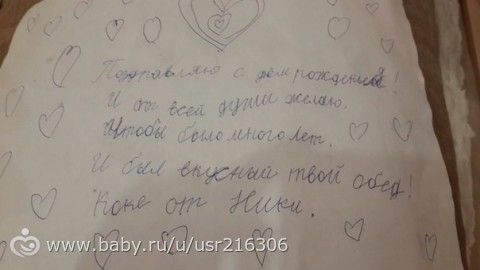 Поздравляю с днём рождения!
И от всей души желаю.
Чтобы было много лет.
И был вкусный твой обед!
Коне от Ники.
www.baby.ru/u/usr216306